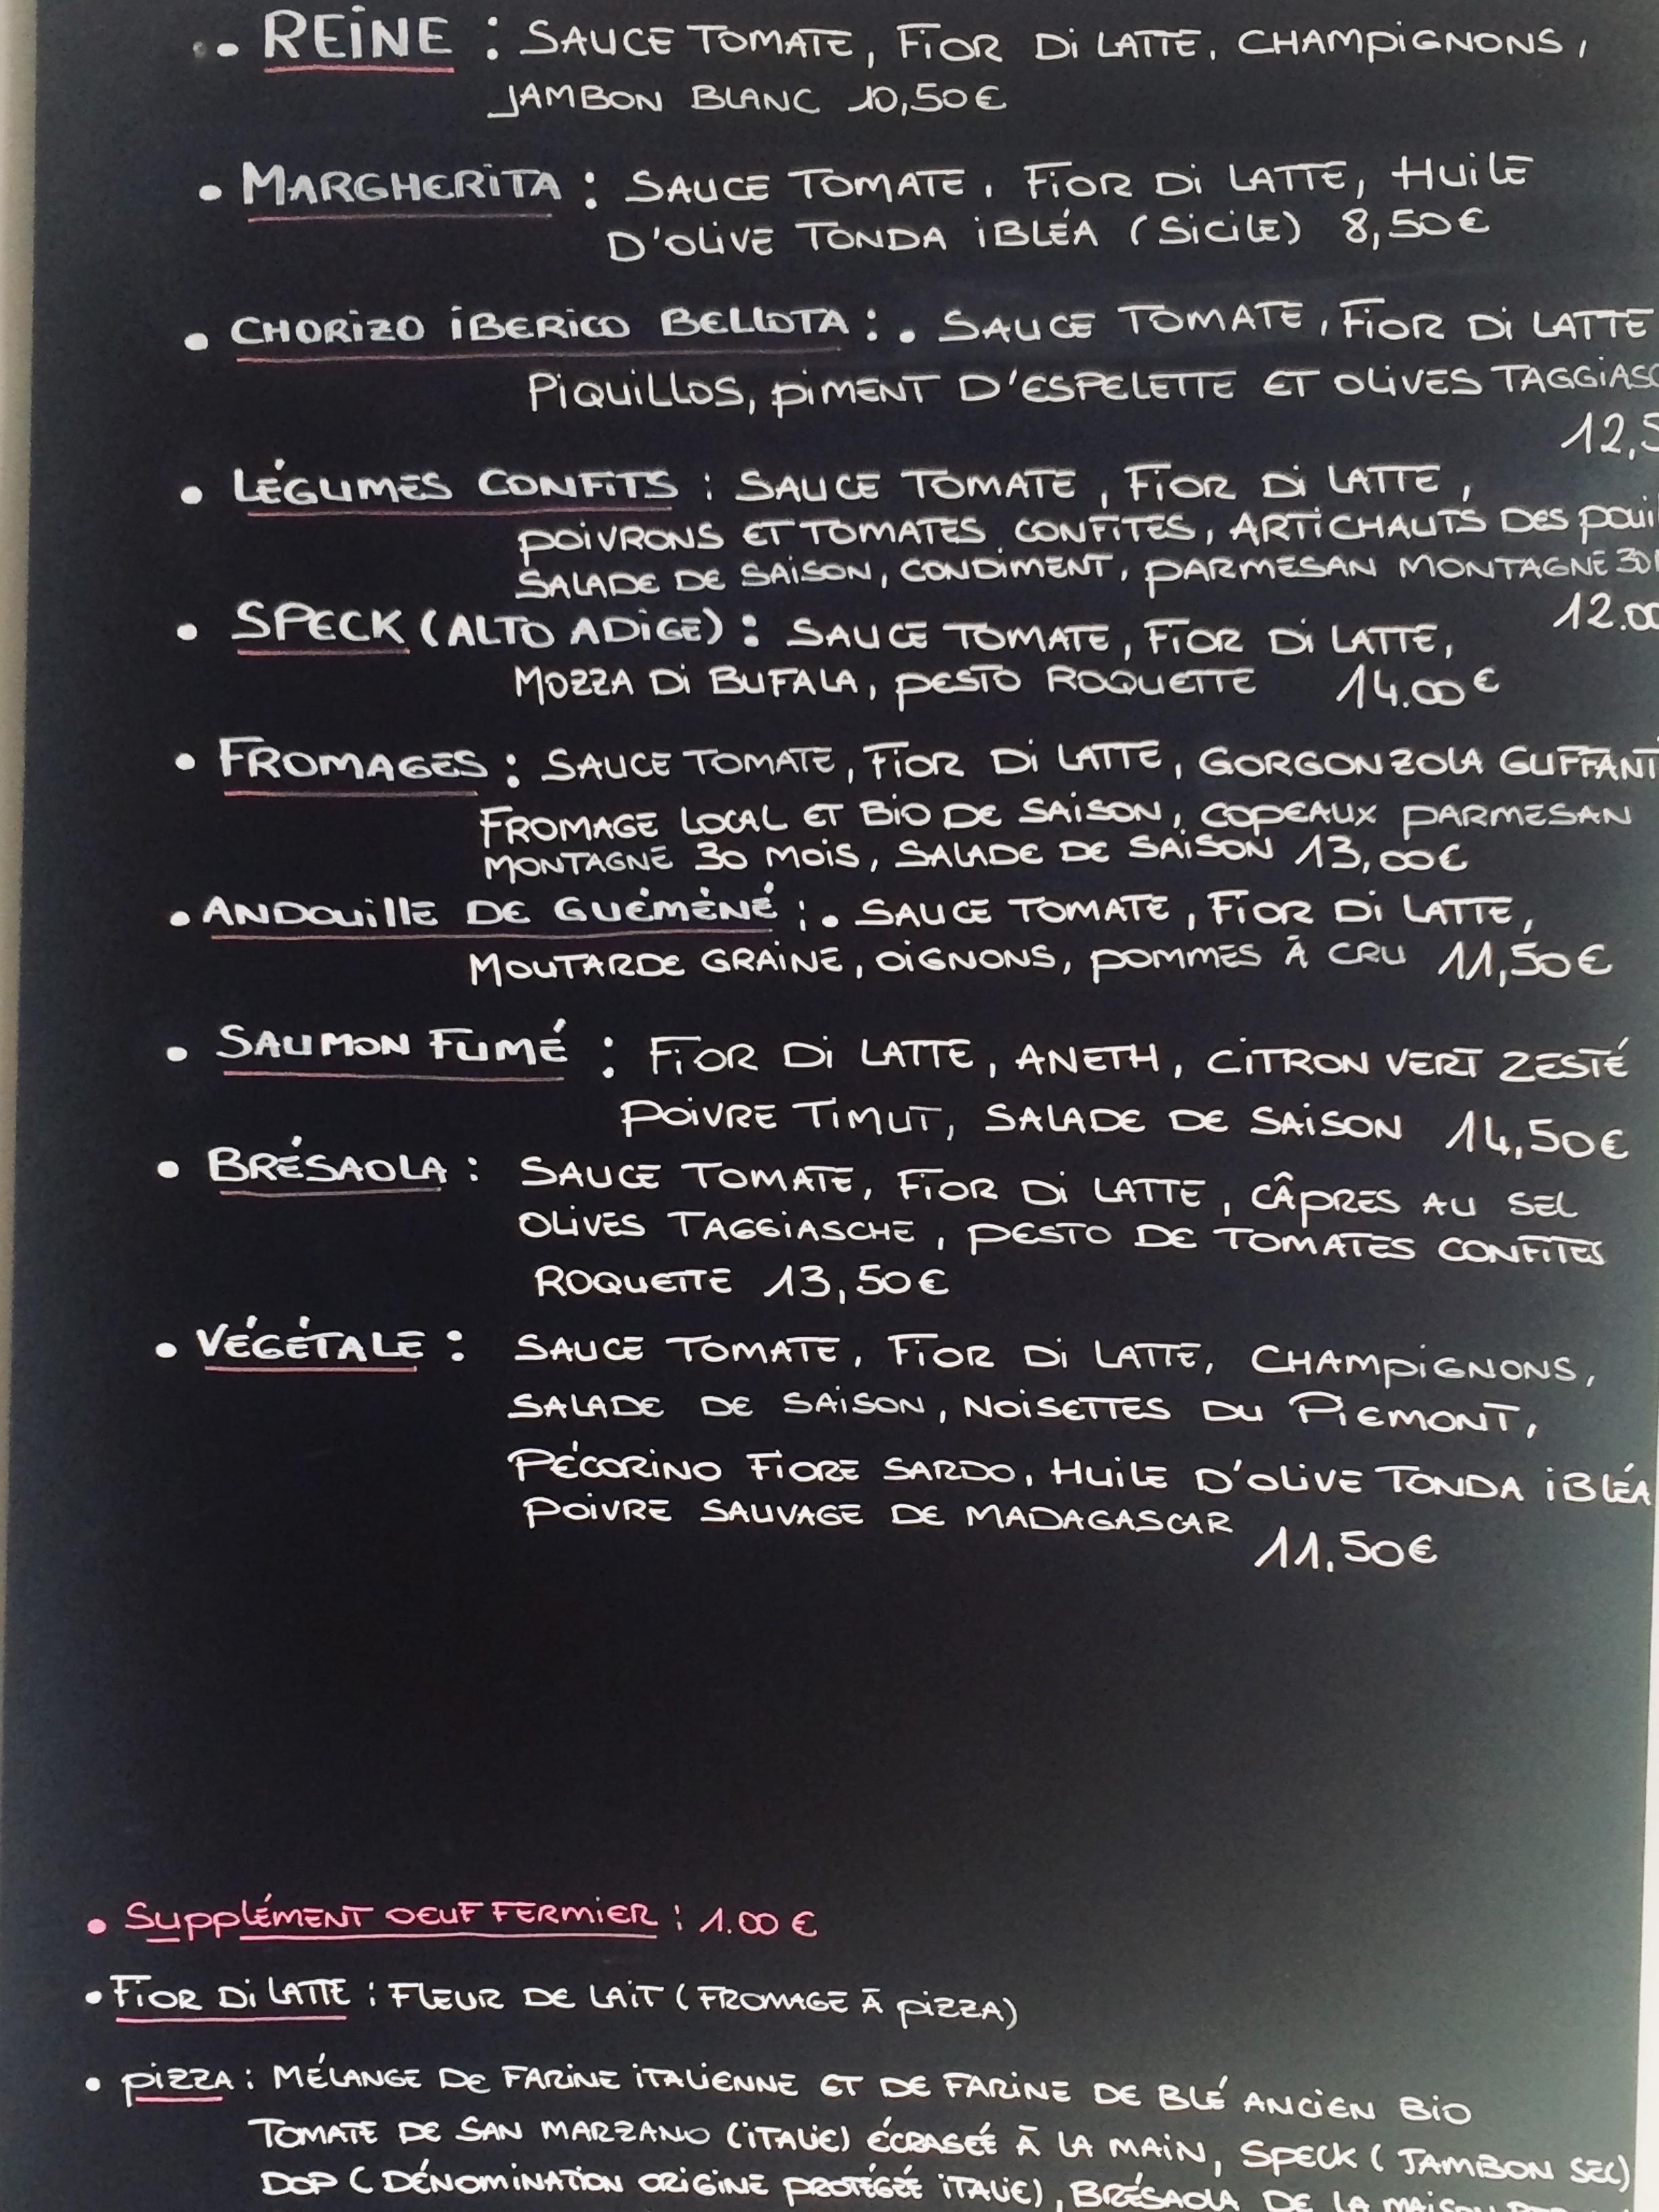 • REINE : SAUCE TOMATE, FIOR DI LATTE, CHAMPIGNONS,
JAMBON BLANC 10,50€
• MARGHERITA : SAUCE TOMATE, FIOR DI LATTE, HUILE
D'OLIVE TONDA IBLÉA (SICILE) 8,50€
• CHORIZO IBERICO BELLOTA : . SAUCE TOMATE, FIOR DI LATTE
PIQUILLOS, PIMENT D'ESPELETTE ET OLIVES TAGGIASC
12,5
• LÉGUMES CONFITS : SAUCE TOMATE, FIOR DI LATTE,
POIVRONS ET TOMATES CONFITES, ARTICHAUTS DES POUIL
SALADE DE SAISON, CONDIMENT, PARMESAN MONTAGNE 30
12.00
• SPECK (ALTO ADIGE) : SAUCE TOMATE, FIOR DI LATTE,
MOZZA DI BUFALA, PESTO ROQUETTE 14.00€
• FROMAGES : SAUCE TOMATE, FIOR DI LATTE, GORGONZOLA GUFFANT
FROMAGE LOCAL ET BIO DE SAISON, COPEAUX PARMESAN
MONTAGNE 30 MOIS, SALADE DE SAISON 13,00€
• ANDOUILLE DE GUÉMÉNÉ : . SAUCE TOMATE, FIOR DI LATTE,
MOUTARDE GRAINE, OIGNONS, POMMES À CRU 11,50€
• SAUMON FUMÉ : FIOR DI LATTE, ANETH, CITRON VERT ZESTÉ
POIVRE TIMUT, SALADE DE SAISON 14,50€
• BRÉSAOLA : SAUCE TOMATE, FIOR DI LATTE, CÂPRES AU SEL
OLIVES TAGGIASCHE, PESTO DE TOMATES CONFITES
ROQUETTE 13,50€
• VÉGÉTALE : SAUCE TOMATE, FIOR DI LATTE, CHAMPIGNONS,
SALADE DE SAISON, NOISETTES DU PIEMONT,
PÉCORINO FIORE SARDO, HUILE D'OLIVE TONDA IBLÉA
POIVRE SAUVAGE DE MADAGASCAR
11,50€
• SUPPLÉMENT OEUF FERMIER : 1.00€
• FIOR DI LATTE : FLEUR DE LAIT (FROMAGE À PIZZA)
• PIZZA : MÉLANGE DE FARINE ITALIENNE ET DE FARINE DE BLÉ ANCIEN BIO
TOMATE DE SAN MARZANO (ITALIE) ÉCRASÉE À LA MAIN, SPECK (JAMBON SEC)
DOP (DÉNOMINATION ORIGINE PROTÉGÉE ITALIE), BRÉSAOLA DE LA MAISON